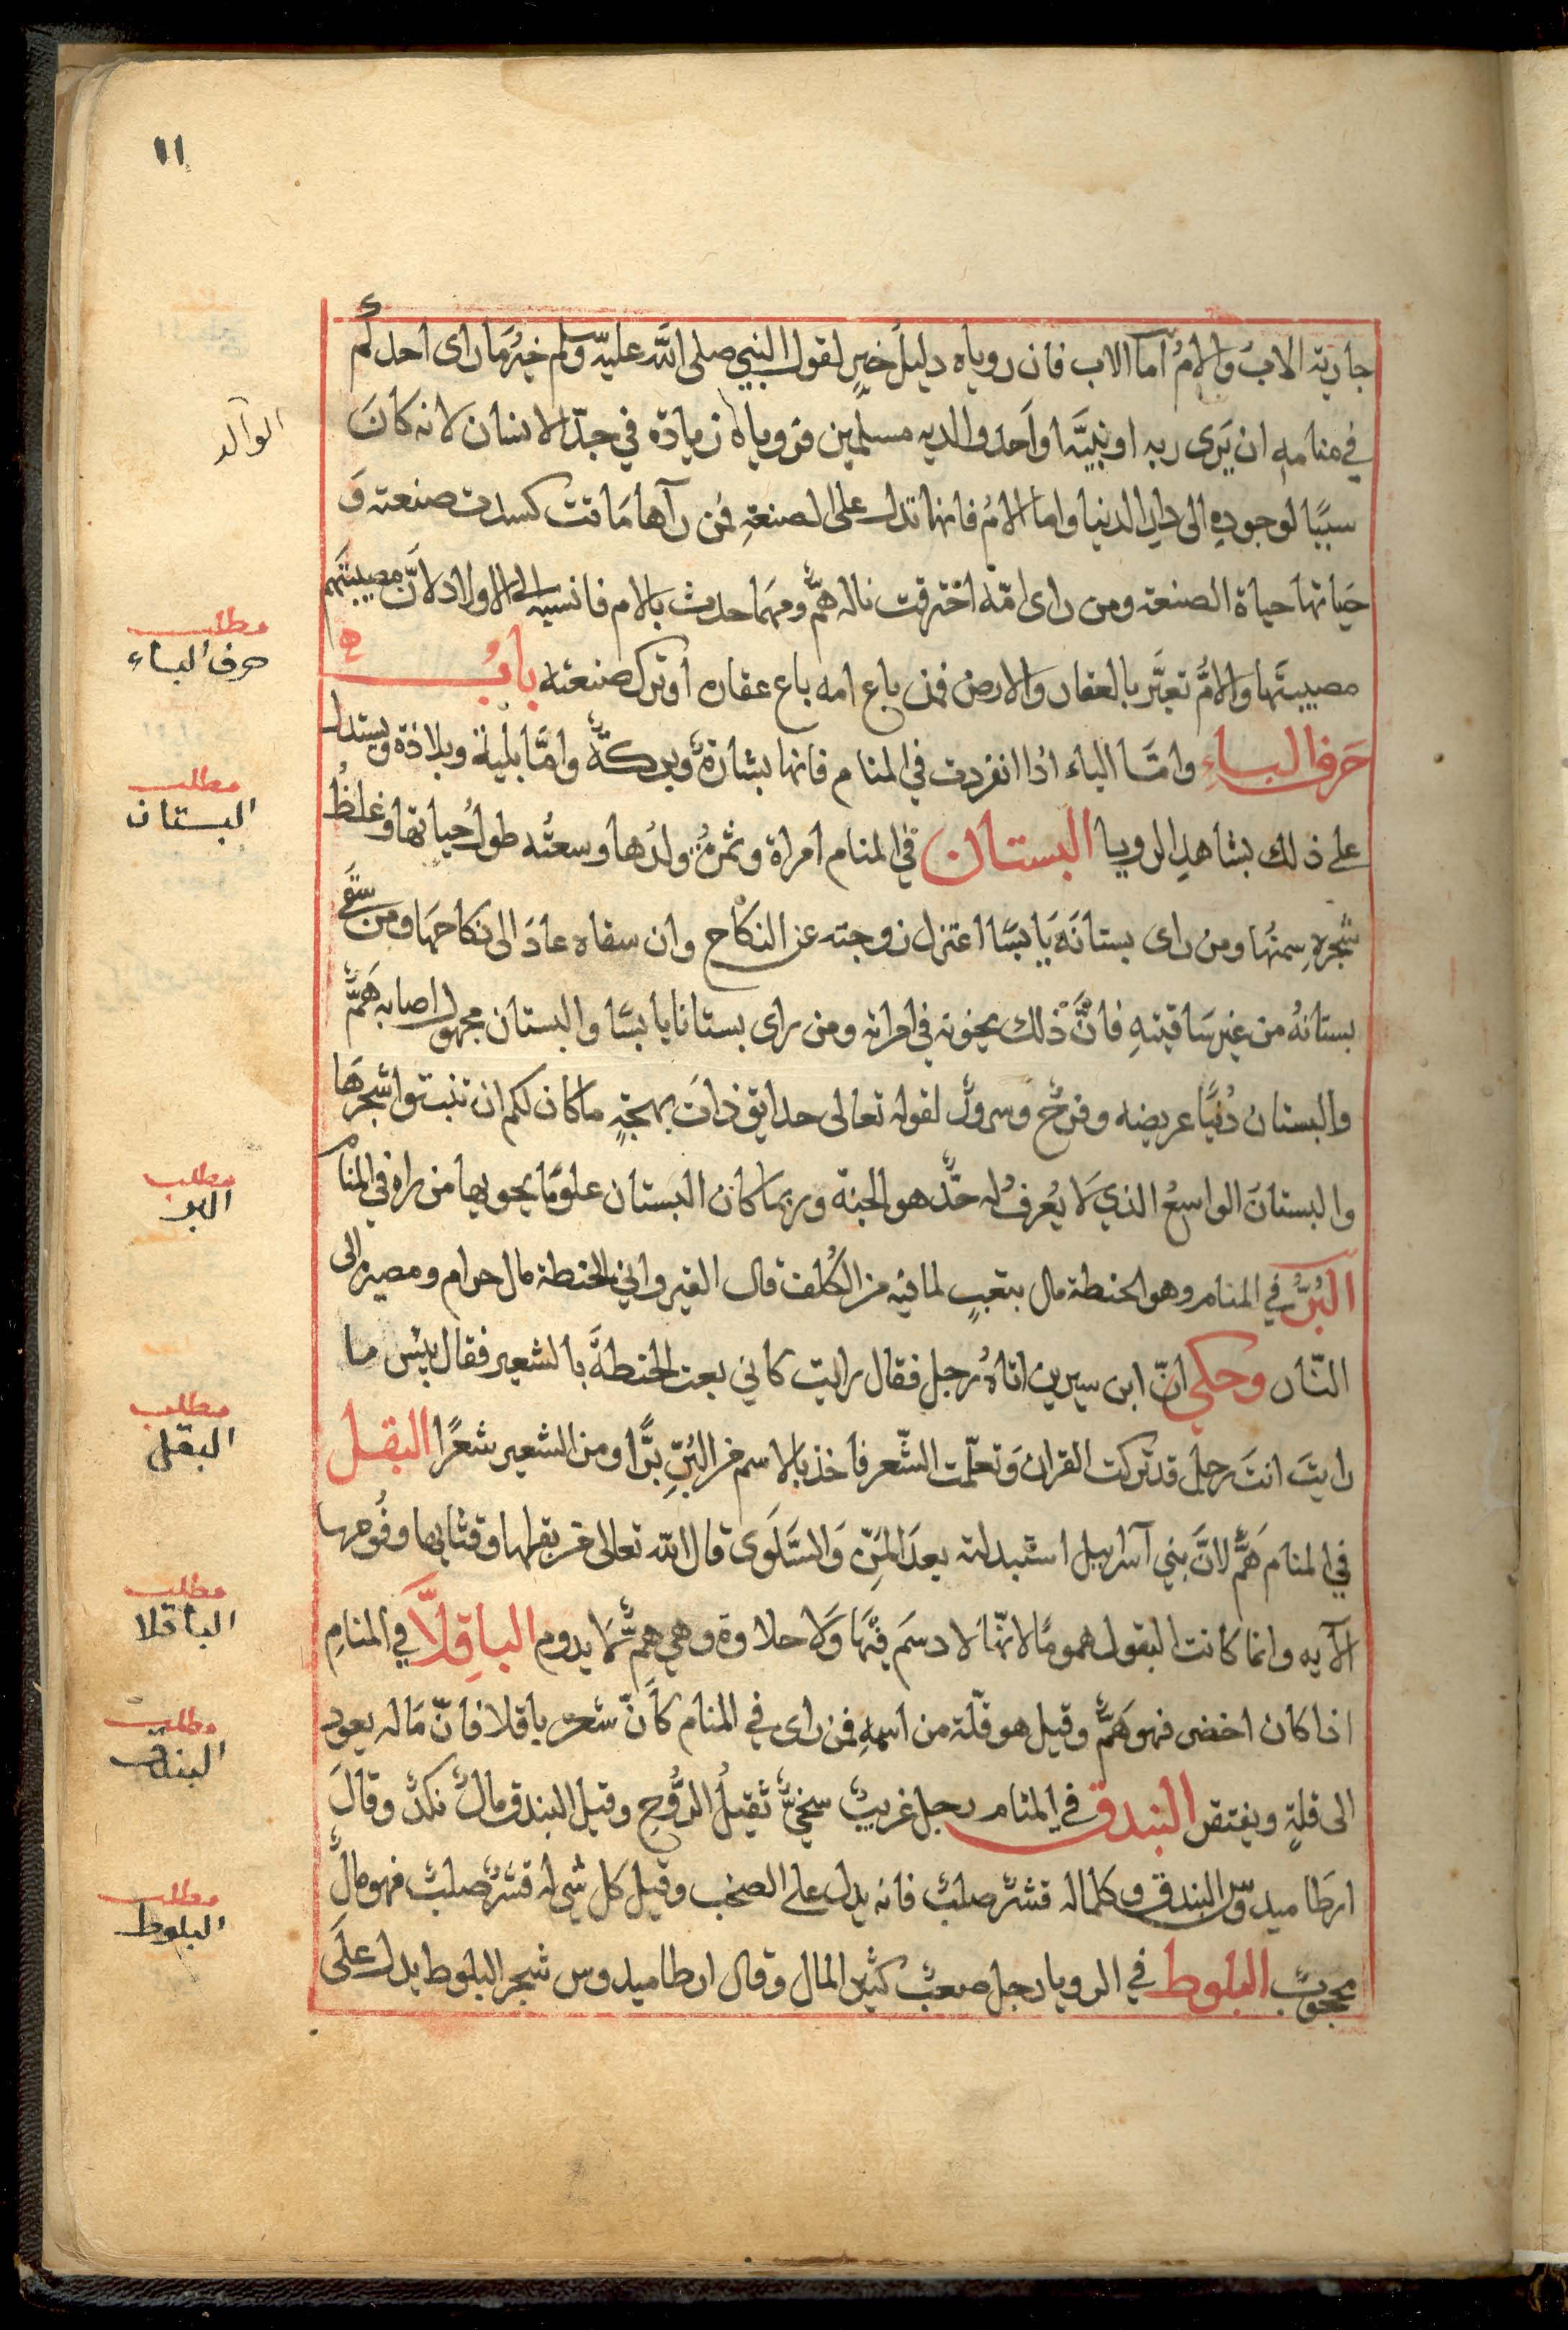 ١١
جاريته الابُ والامُ اما الاب فان روياه دليلُ خيرٍ لقول النبي صلى الله عليه وسلم خيرُ ما راى احدكم
الوالد
في منامه ان يَرى ربه او نبيَّه او اَحد والديه مسلمين فروياه زيادة في جدّ الانسان لانه كانَ
سببًا لوجوده الى دار الدنيا واما الامُ فانها تدل على الصنعةِ فمن رآها مَاتت كسدت صنعته وَ
حَياتها حياة الصنعة ومن راى امّه احترقت ناله همٌّ ومهما حدث بالام فانسبه الى الاولاد لانّ مصيبتهم
مصيبتَها والامُّ تعبَّر بالعقار والارض فمن باع امه باع عقاره اوترك صنعته بابُ
مطلب حرف الباء
حَرف الباءِ وامّا الباء اذا انفردت في المنام فانها بشارةٌ وبركةٌ وامّا بليّة وبلاذة ويستدل
مطلب البستان
على ذلك بشاهدِ الرويا البستان في المنام امراة وثمرهُ ولدُها وسعتُه طولُ حياتها وغلظُ
شجرهِ سمنُها ومن راى بستانَه يَابسًا اعتزل زوجته عن النكاح وان سقاه عادَ الى نكاحهَا ومن سقَى
بستانهُ من غير سَاقيتهِ فانَّ ذلك يخونه في امراته ومن راى بستانا يابسًا والبستان مجهول اصابه هَمٌّ
والبستان دُنيًا عريضه وفرحٌ وسرورٌ لقوله تعالى حدايق ذاتَ بهجةٍ ماكان لكم ان تنبتوا شجرهَا
والبستانَ الواسعُ الذي لَا يُعرفُ له حدٌّ هو الجنة وربما كان البستان علومًا يحويها من راه في المنام
مطلب البر
البُرُّ في المنام وهو الحنطة مال بتعبٍ لما فيه من الكُلفة قال القيرواني الحنطة مال حرام ومصيره الى
النّار وحكى انّ ابن سيرين اتاهُ رجل فقال رايت كاني بعت الحنطةَ بالشعير فقال بيْس ما
رايتَ انتَ رجل قد تركت القران وَتعلّمت الشّعر فاخذ بالاسم من البُرِّ بَرًّا ومن الشعير شعرًا البقل
مطلب البقل
في المنام هَمٌّ لانَّ بني آسرابيل استبدلته بعدَ المَنِّ وَالسَّلَوى قال الله تعالى من بقلها وقثايها وفُومها
الآيه وانما كانت البقول هموما لانّها لا دسَم فيْهَا وَلا حلاوة وهي همٌّ لَا يدوم الباقِلاَّ في المنامِ
مطلب الباقلا
اذا كان اخضر فهو هَمٌّ وقيل هو قلّة من اسمهِ فمن راى في المنام كاَنّ شعره باقلا فانّ مَاله يعود
مطلب البندق
الى قلةٍ ويفتقر البندق في المنام رجل غريبٌ سخيٌّ ثقيلُ الرُّوحِ وقيل البندق مالٌ نكدٌ وقالَ
ارطاميدوس البندق وكلماله قشرٌ صلبٌ فانه يدل على الصخب وقيل كل شي له قشرٌ صلبٌ فهو مالٌ
مطلب البلوط
محجوبٌ البلوط في الرويا رجل صعبٌ كثير المال وقال ارطاميدوس شجر البلوط يدل علَى